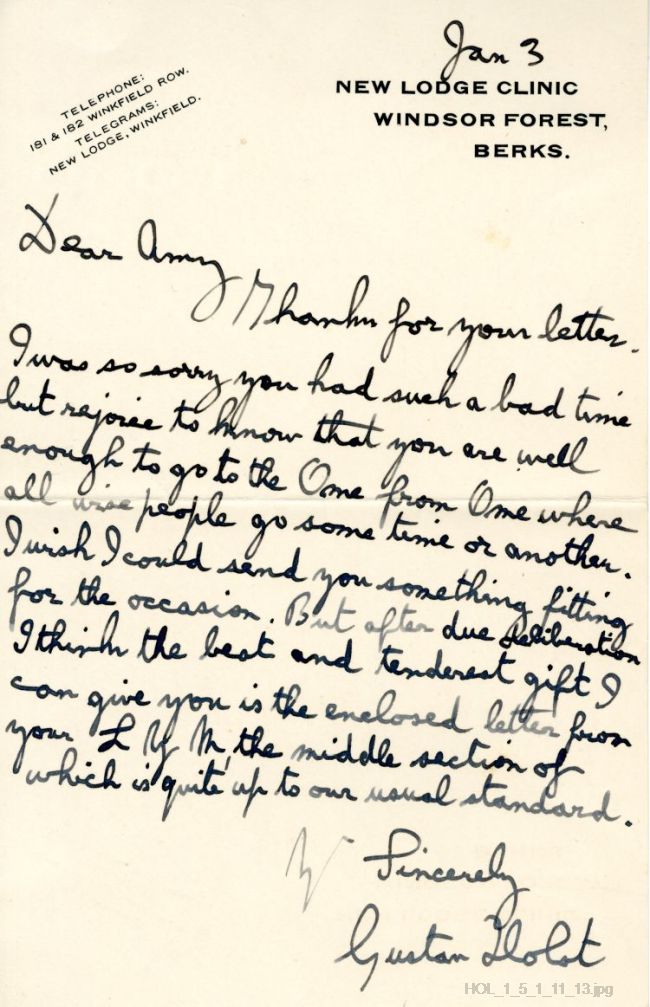 Jan 3
NEW LODGE CLINIC
WINDSOR FOREST,
BERKS.
TELEPHONE:
181 & 182 WINKFIELD ROW.
TELEGRAMS:
NEW LODGE, WINKFIELD.
Dear Amy
Thanks for your letter.
I was so sorry you had such a bad time
but rejoice to know that you are well
enough to go to the Ome from Ome where
all wise people go some time or another.
I wish I could send you something fitting
for the occasion. But after due deliberation
I think the best and tenderest gift I
can give you is the enclosed letter from
your L Y M, the middle section of
which is quite up to our usual standard.
Sincerely
Gustav Holst
HOL_1_5_1_11_13.jpg